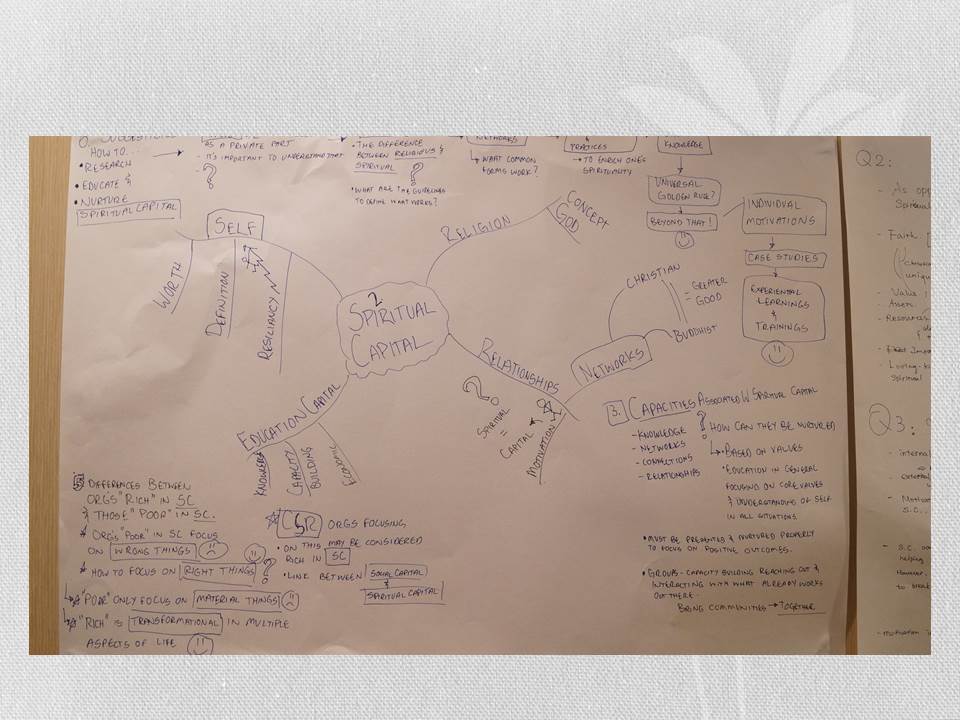 HOW TO...
• RESEARCH
• EDUCATE &
• NURTURE
SPIRITUAL CAPITAL
AS A PRIVATE PART
- IT'S IMPORTANT TO UNDERSTAND THAT
?
• THE DIFFERENCE
BETWEEN RELIGIOUS &
SPIRITUAL ?
• WHAT ARE THE GUIDELINES
TO DEFINE WHAT WORKS?
NETWORKS
WHAT COMMON
FORMS WORK?
&
PRACTICES
→ TO ENRICH ONE'S
SPIRITUALITY
KNOWLEDGE
UNIVERSAL
GOLDEN RULE?
BEYOND THAT!
INDIVIDUAL
MOTIVATIONS
CASE STUDIES
EXPERIENTIAL
LEARNINGS
&
TRAININGS
2
SPIRITUAL
CAPITAL
SELF
WORTH
DEFINITION
RESILIANCY
RELIGION
CONCEPT
GOD
RELATIONSHIPS
?
SPIRITUAL
=
CAPITAL
MOTIVATION
NETWORKS
CHRISTIAN
= GREATER
GOOD
BUDDHIST
EDUCATION CAPITAL
KNOWLEDGE
CAPACITY
BUILDING
ECONOMIC
3. CAPACITIES ASSOCIATED W SPIRITUAL CAPITAL
- KNOWLEDGE
- NETWORKS
- CONNECTIONS
- RELATIONSHIPS
? HOW CAN THEY BE NURTURED
→ BASED ON VALUES
• EDUCATION IN GENERAL
FOCUSING ON CORE VALUES
& UNDERSTANDING OF SELF
IN ALL SITUATIONS.
• MUST BE PRESENTED & NURTURED PROPERLY
TO FOCUS ON POSITIVE OUTCOMES.
• GROUPS - CAPACITY BUILDING REACHING OUT &
INTERACTING WITH WHAT ALREADY WORKS
OUT THERE..
BRING COMMUNITIES → TOGETHER
5 DIFFERENCES BETWEEN
ORGS "RICH" IN SC
& THOSE "POOR" IN SC.
* ORG'S "POOR" IN SC FOCUS
ON WRONG THINGS
* HOW TO FOCUS ON RIGHT THINGS ?
"POOR" ONLY FOCUS ON MATERIAL THINGS
"RICH" IS TRANSFORMATIONAL IN MULTIPLE
ASPECTS OF LIFE
CSR ORGS FOCUSING
• ON THIS MAY BE CONSIDERED
RICH IN SC
• LINK BETWEEN SOCIAL CAPITAL
&
SPIRITUAL CAPITAL
Q2:
- As opp
Spiritual
- Faith
uniqu
- Value
- Assets
- Resources
- Impo
- Loving-k
Spiritual
Q3:
- interna
- Motivat
S.C..
- S.C.
helping
However,
to
- motivation